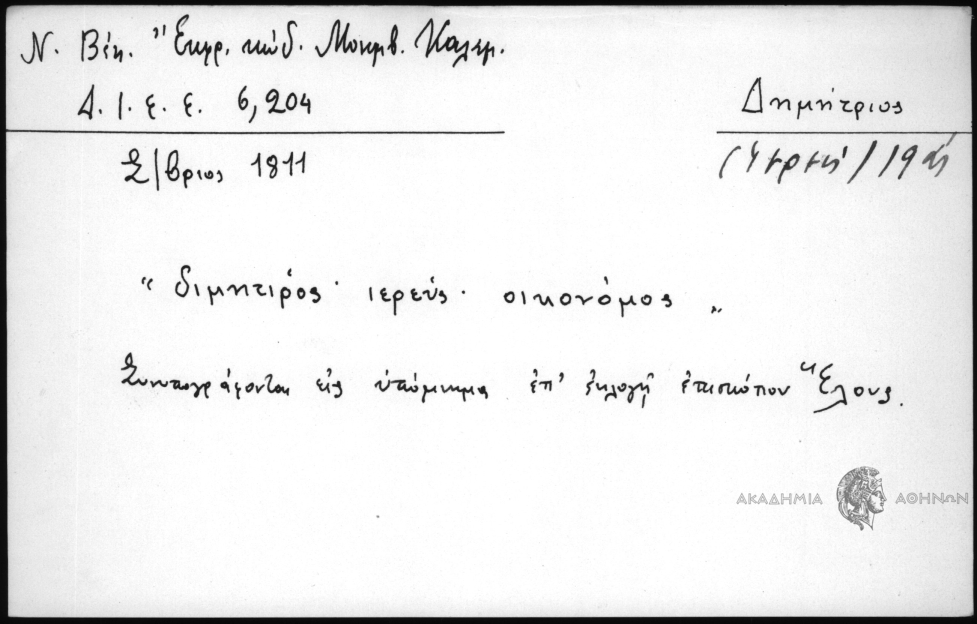 Ν. Βέη. Ἔκφρ. κώδ. Μονεμβ. Καλαμ.
Δ. Ι. Ε. Ε. 6, 204
Δημήτριος
Σ/βριος 1811
" διμητιρός · ιερεύς · οικονόμος "
Συνυπογράφονται εἰς ὑπόμνημα ἐπ' ἐκλογῇ ἐπισκόπου Ἕλους.
ΑΚΑΔΗΜΙΑ ΑΘΗΝΩΝ